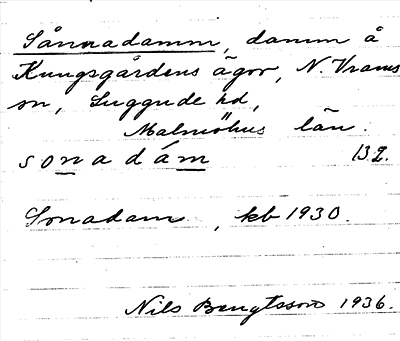 Sånnadamm, damm å
Kungsgårdens ägor, N. Vrams
sn, Luggude hd,
Malmöhus län.
sonadám 132.
Sonadam, kb 1930.
Nils Bengtsson 1936.